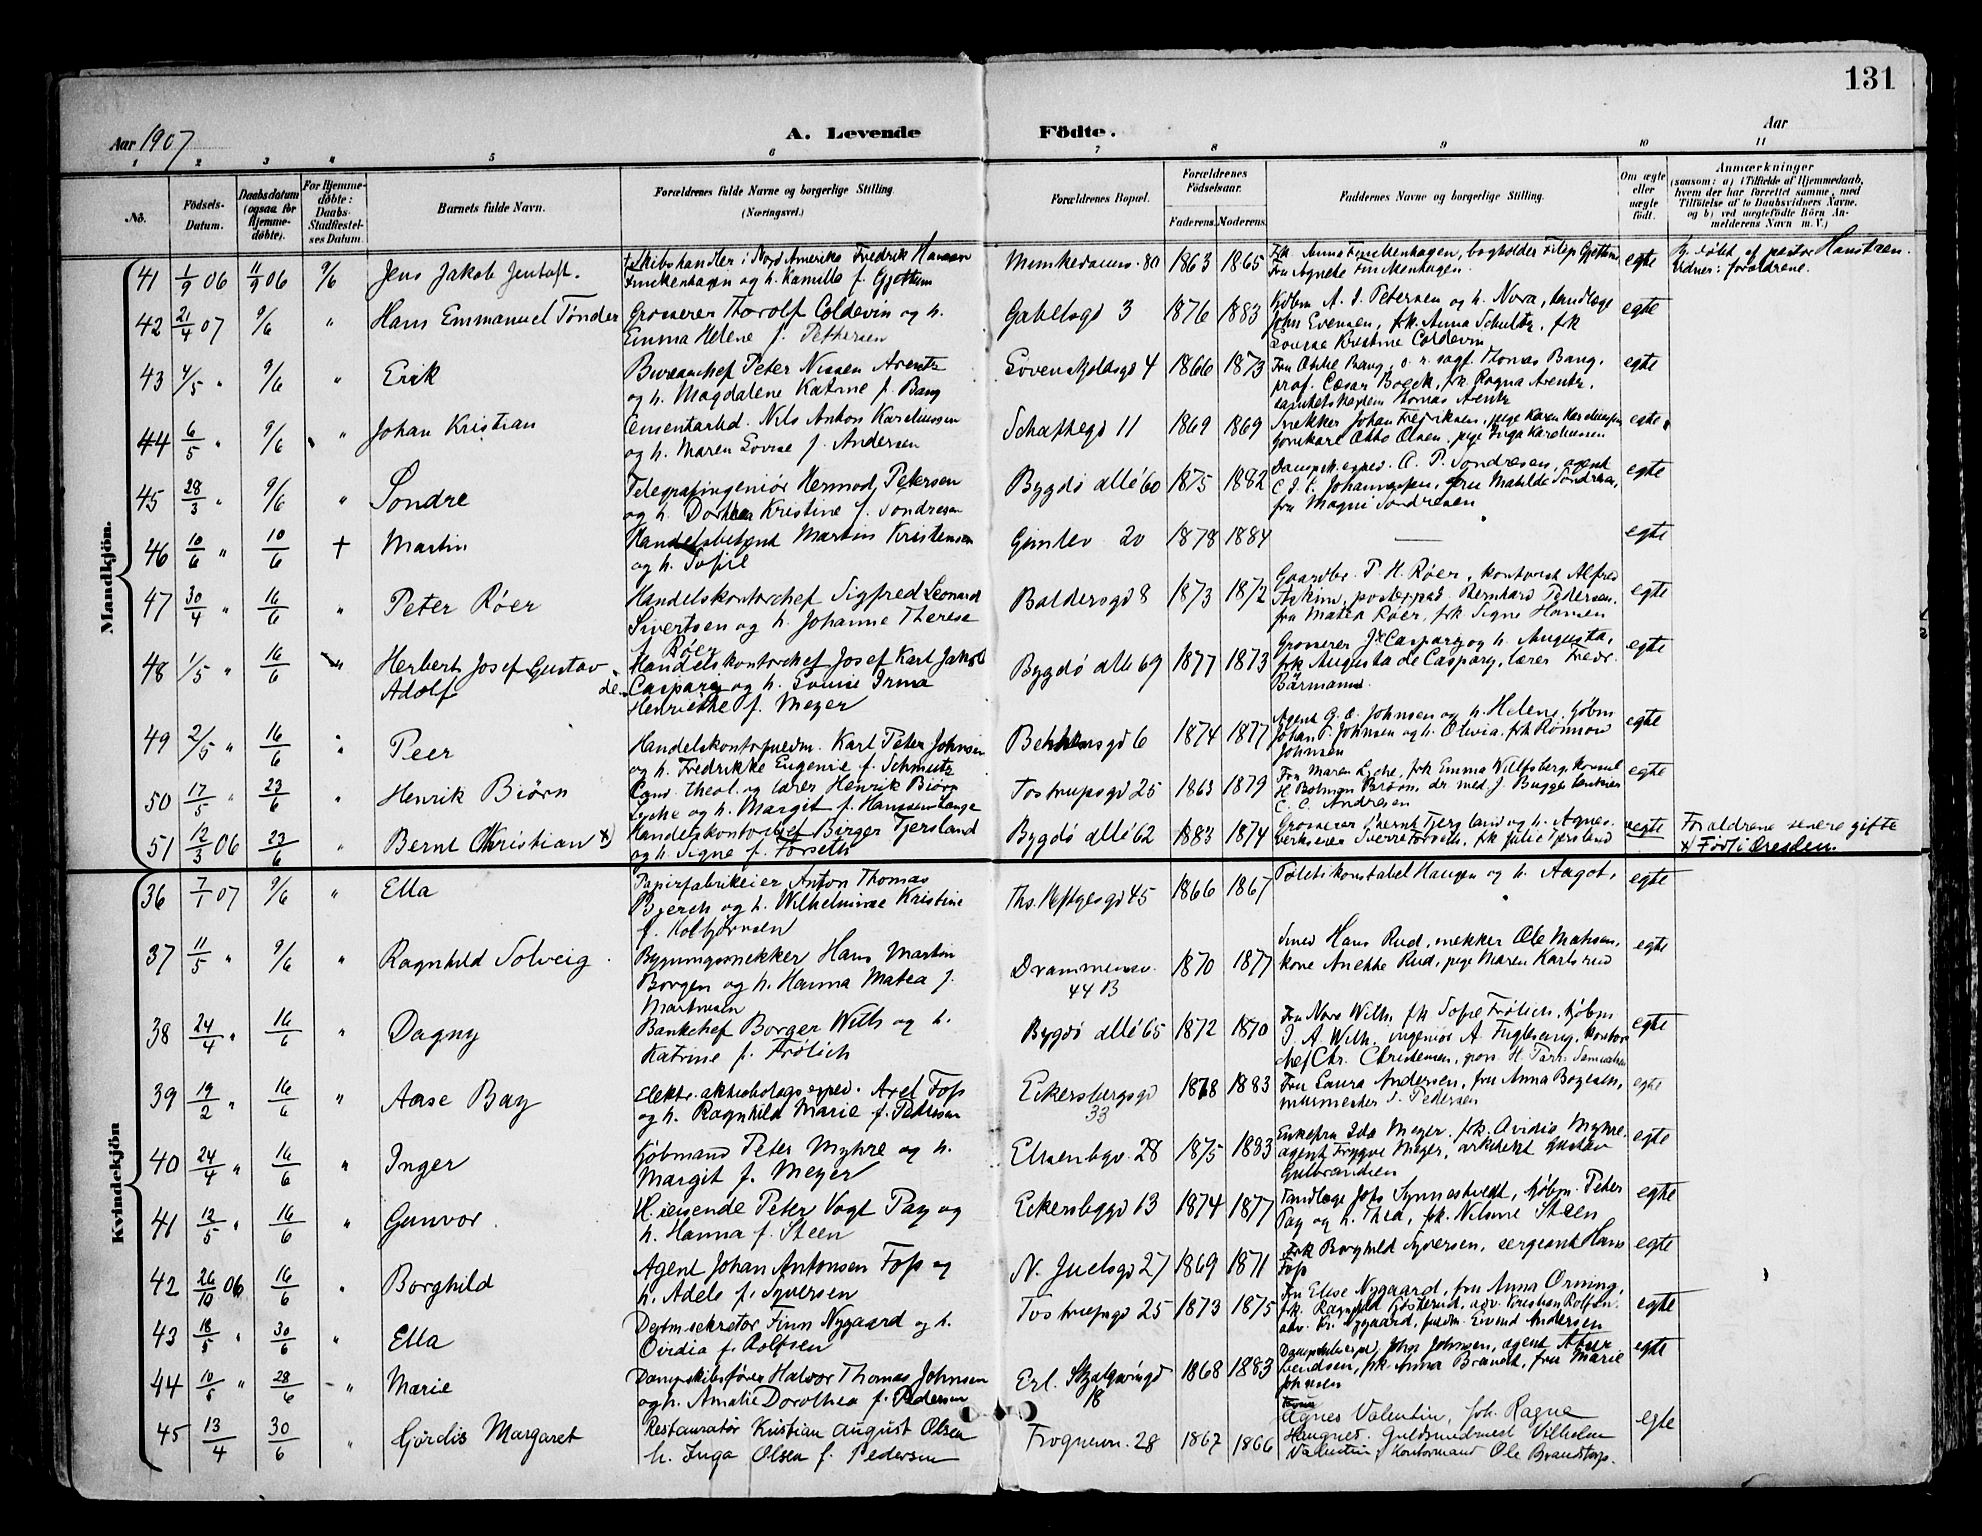 131
Aar 1907
A. Levende Födte.
Aar
1 2 3 4 5 6 7 8 9 10 11
No.
Födsels-Datum.
Daabsdatum (ogsaa for Hjemme-döbte).
For Hjemme-döbte: Daabs-Stadfæstel-ses Datum.
Barnets fulde Navn.
Forældrenes fulde Navne og borgerlige Stilling. (Næringsvei.)
Forældrenes Bopæl.
Forældrenes Födselsaar.
Faderens. Moderens.
Faddernes Navne og borgerlige Stilling.
Om ægte eller uægte födt.
Anmærkninger
(saasom: a) i Tilfælde af Hjemmedaab, hvem der har forrettet samme, med Tilföielse af to Daabsvidners Navne, og b) ved uegtefödte Börn An-melderens Navn m. V.)
Mandkjön.
41 1/9 06 11/9 06 9/6 Jens Jakob Jentoft. Skibshandler i Nord Amerika Fredrik Hansen Finckenhagen og h. Kamilla f. Gjethem Munkedamsv. 80 1863 1865 Frk. Anna Finckenhagen, bogholder Filip Gjethem Fru Agnete Finckenhagen. egte Hj. döbt af pastor Hansteen. Vidner: forældrene.
42 21/4 07 9/6 " Hans Emmanuel Tönder Grosserer Thorolf Coldevin og h. Emma Helene f. Pettersen Gabelsgd 3 1876 1883 Kjöbm A. I. Petersen og h. Nora, tandlæge John Evensen, frk. Anna Schultz, frk Lovise Kristine Coldevin egte
43 4/5 " 9/6 " Erik Bureauchef Peter Nissen Arentz og h. Magdalene Katrine f. Bang Lovenskjoldsgd 4 1866 1873 Bang, o. r. sagf. Thomas Bang, prof. Cæsar Boeck, frk. Ragna Arentz, Thomas Arentz egte
44 6/5 " 9/6 " Johan Kristian Cementarbd. Nils Anton Kareliussen og h. Maren Lovise f. Andersen Schaftegd 11 1869 1869 Snekker Johan Fredriksen, pige Karen Kareliussen Otto Olsen, pige Inga Kareliussen egte
45 28/3 " 9/6 " Söndre Telegrafingeniör Hermod Petersen og h. Dorthea Kristine f. Söndresen Bygdö allé 60 1875 1882 Dampsk.exped. O. P. Söndresen, agent C. J. E. Johannessen, fru Matilde Söndresen, fru Magni Söndresen egte
46 10/6 " 10/6 + Martin Handelsbetjent Martin Kristensen og h. Sofie Gimlev 20 1878 1884 — egte
47 30/4 " 16/6 " Peter Röer Handelskontorchef Sigfred Leonard Sivertsen og h. Johanne Therese f. Röer Baldersgd 8 1873 1872 Gaardbr. P. H. Röer, kontorist Alfred Askim, postexped. Bernhard Pedersen, fru Matea Röer, frk Signe Hansen egte
48 1/5 " 16/6 " Herbert Josef Gustav Adolf Handelskontorchef Josef Karl Jakob de Caspary og h. Louise Irma Henriette f. Meyer Bygdö allé 69 1877 1873 Grosserer J. Caspary og h. Augusta, frk Augusta de Caspary, lærer Fredr. Bärmann. egte
49 2/5 " 16/6 " Peer Handelskontorfuldm. Karl Peter Johnsen og h. Fredrikke Eugenie f. Schmutz Behrensgd 6 1874 1877 Agent G. E. Johnsen og h. Helene, kjöbm Johan Johnsen og h. Olivia, frk Rönnow Johnsen egte
50 17/5 " 23/6 " Henrik Biörn Cand. theol. og lærer Henrik Biörn Lyche og h. Margit f. Hanssen Lange Tostrupsgd 25 1863 1879 Fru Maren Lyche, frk Emma Wulfsberg, konsul H. Bolman Biörn, dr. med. J. Bugge, bankier C. C. Andresen egte
51 12/3 06 23/6 " Bernt Christian x) Handelskontorchef Birger Tjersland og h. Signe f. Forseth Bygdö allé 62 1883 1874 Grosserer Bernt Tjersland og h. Agnes, verkseier Sverre Forseth, frk Julie Tjersland uegte Forældrene senere gifte x Födt i Dresden.
Kvindekjön
36 7/1 07 9/6 " Ella Papirfabrikeier Anton Thomas Bjerch og h. Wilhelmine Kristine f. Kolbjörnsen Ths. Heftyesgd 45 1866 1867 Politikonstabel Haugen og h. Aagot, egte
37 11/5 " 9/6 " Ragnhild Solveig. Bygningssnekker Hans Martin Borgen og h. Hanna Matea f. Martinsen Drammensv. 44 B 1870 1877 Smed Hans Rud, snekker Ole Mathisen, kone Anette Rud, pige Maren Karlsrud egte
38 24/4 " 16/6 " Dagny Bankchef Borger With og h. Katrine f. Frölich Bygdö allé 65 1872 1870 Fru Nora With, frk Sofie Frölich, kjöbm J. A. With, ingeniör A. Fuglesang, kontor chef Chr. Christensen, gros. H. Parr Samuelsen egte
39 19/2 " 16/6 " Aase Bay Elektr. aktiebolags exped. Axel Foss og h. Ragnhild Marie f. Pedersen Eckersbergsgd 33 1878 1883 Fru Laura Andersen, fru Anna Bogesen, murmester T. Pedersen egte
40 24/4 " 16/6 " Inger Kjöbmand Peter Myhre og h. Margit f. Meyer Elisenbgv. 28 1875 1883 Enkefru Ida Meyer, frk. Ovidia Myhre, agent Trygve Meyer, arkitekt Gustav Gulbrandsen egte
41 12/5 " 16/6 " Gunvor. H.reisende Peter Vogt Pay og h. Hanna f. Steen Eckersbggd 13 1874 1877 Tandlæge Johs Synnestvedt, kjöbm. Peter Pay og h. Thea, frk. Nilsine Steen egte
42 26/10 06 16/6 " Borghild Agent Johan Antonsen Foss og h. Adele f. Syversen N. Juelsgd 27 1869 1871 Frk Borghild Syversen, sergeant Hans Foss egte
43 18/5 " 30/6 " Ella Deptm.sekretær Finn Nygaard og h. Ovidia f. Rolfsen Tostrupsgd 25 1873 1875 Fru Elise Nygaard, fru Anna Orning, frk. Ragnhild Kjosterud, adv. Kristian Rolfsen. adv. Kr. Nygaard, fuldm. Eivind Andersen egte
44 10/5 " 28/6 " Marie Dampskibsförer Halvor Thomas Johnsen og h. Amalie Dorothea f. Pedersen Erl. Skjalgssönsgd 18 1868 1883 Johs Johnsen, agent Bendsen, frk Anna Brandt, fru Marie Johnsen egte
45 13/4 30/6 " Gjördis Margaret Restauratör Kristian August Olsen h. Inga Olsen f. Pedersen Frognerv. 28 1867 1866 Fruerne Agnes Valentin, frk. Ragna Haugnes. Guldsmedmest Vilhelm Valentin, Kontormand Ole Brandstorp. egte